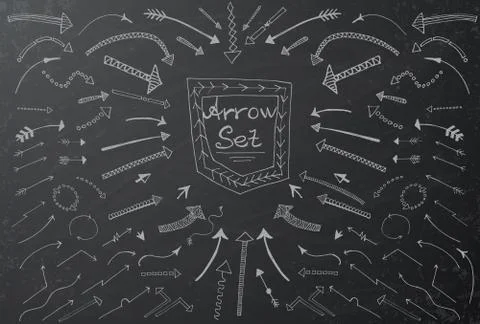 Arrow
Set